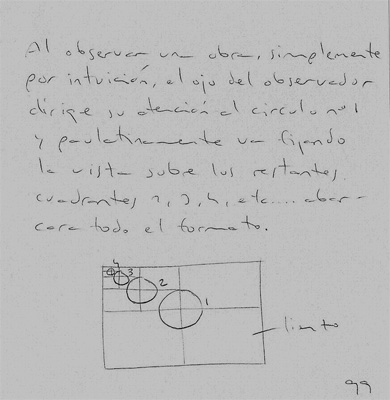 Al observar una obra, simplemente
por intuición, el ojo del observador
dirige su atención al circulo nº1
y paulatinamente va fijando
la vista sobre los restantes.
cuadrantes 2, 3, 4, etc.... abar-
cara todo el formato.
4
3
2
1
lienzo
99